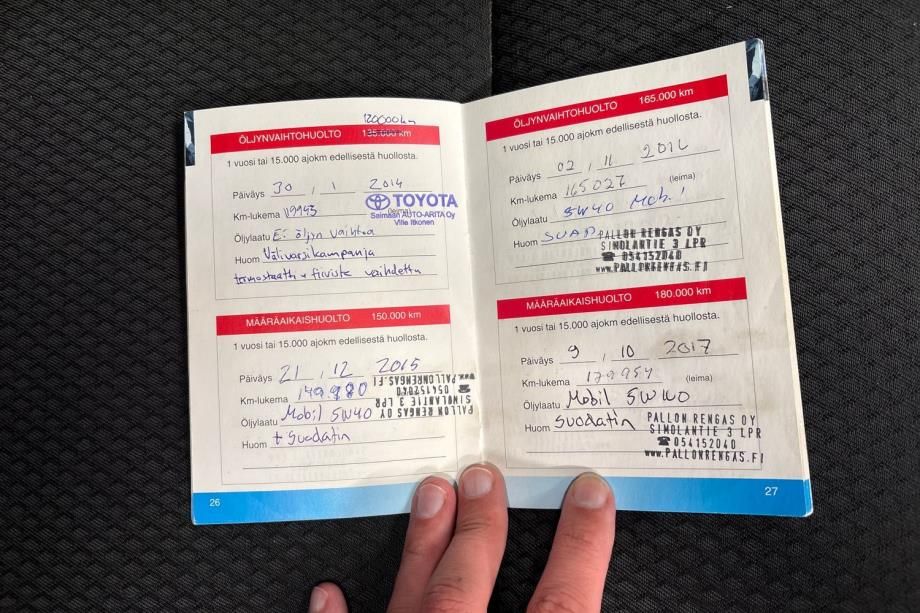 120000km
ÖLJYNVAIHTOHUOLTO 135.000 km
1 vuosi tai 15.000 ajokm edellisestä huollosta.
Päiväys 30 . 1 2014
Km-lukema 119943 (leima)
TOYOTA
Saimaan AUTO-ARITA Oy
Ville Itkonen
Öljylaatu Ei öljyn vaihtoa
Huom Välivarsikampanja
termostaatti + tiiviste vaihdettu
MÄÄRÄAIKAISHUOLTO 150.000 km
1 vuosi tai 15.000 ajokm edellisestä huollosta.
Päiväys 21 . 12 2015
Km-lukema 149980
Öljylaatu Mobil 5W40
Huom + Suodatin
PALLON RENGAS OY
SIMOLANTIE 3 LPR
☎ 054152040
www.PALLONRENGAS.FI
26
ÖLJYNVAIHTOHUOLTO 165.000 km
1 vuosi tai 15.000 ajokm edellisestä huollosta.
Päiväys 02 . 11 2016
Km-lukema 165027 (leima)
Öljylaatu 5W40 Mobil
Huom
PALLON RENGAS OY
SIMOLANTIE 3 LPR
☎ 054152040
www.PALLONRENGAS.FI
MÄÄRÄAIKAISHUOLTO 180.000 km
1 vuosi tai 15.000 ajokm edellisestä huollosta.
Päiväys 9 . 10 2017
Km-lukema 179954 (leima)
Öljylaatu Mobil 5W40
Huom Suodatin
PALLON RENGAS OY
SIMOLANTIE 3 LPR
☎ 054152040
www.PALLONRENGAS.FI
27